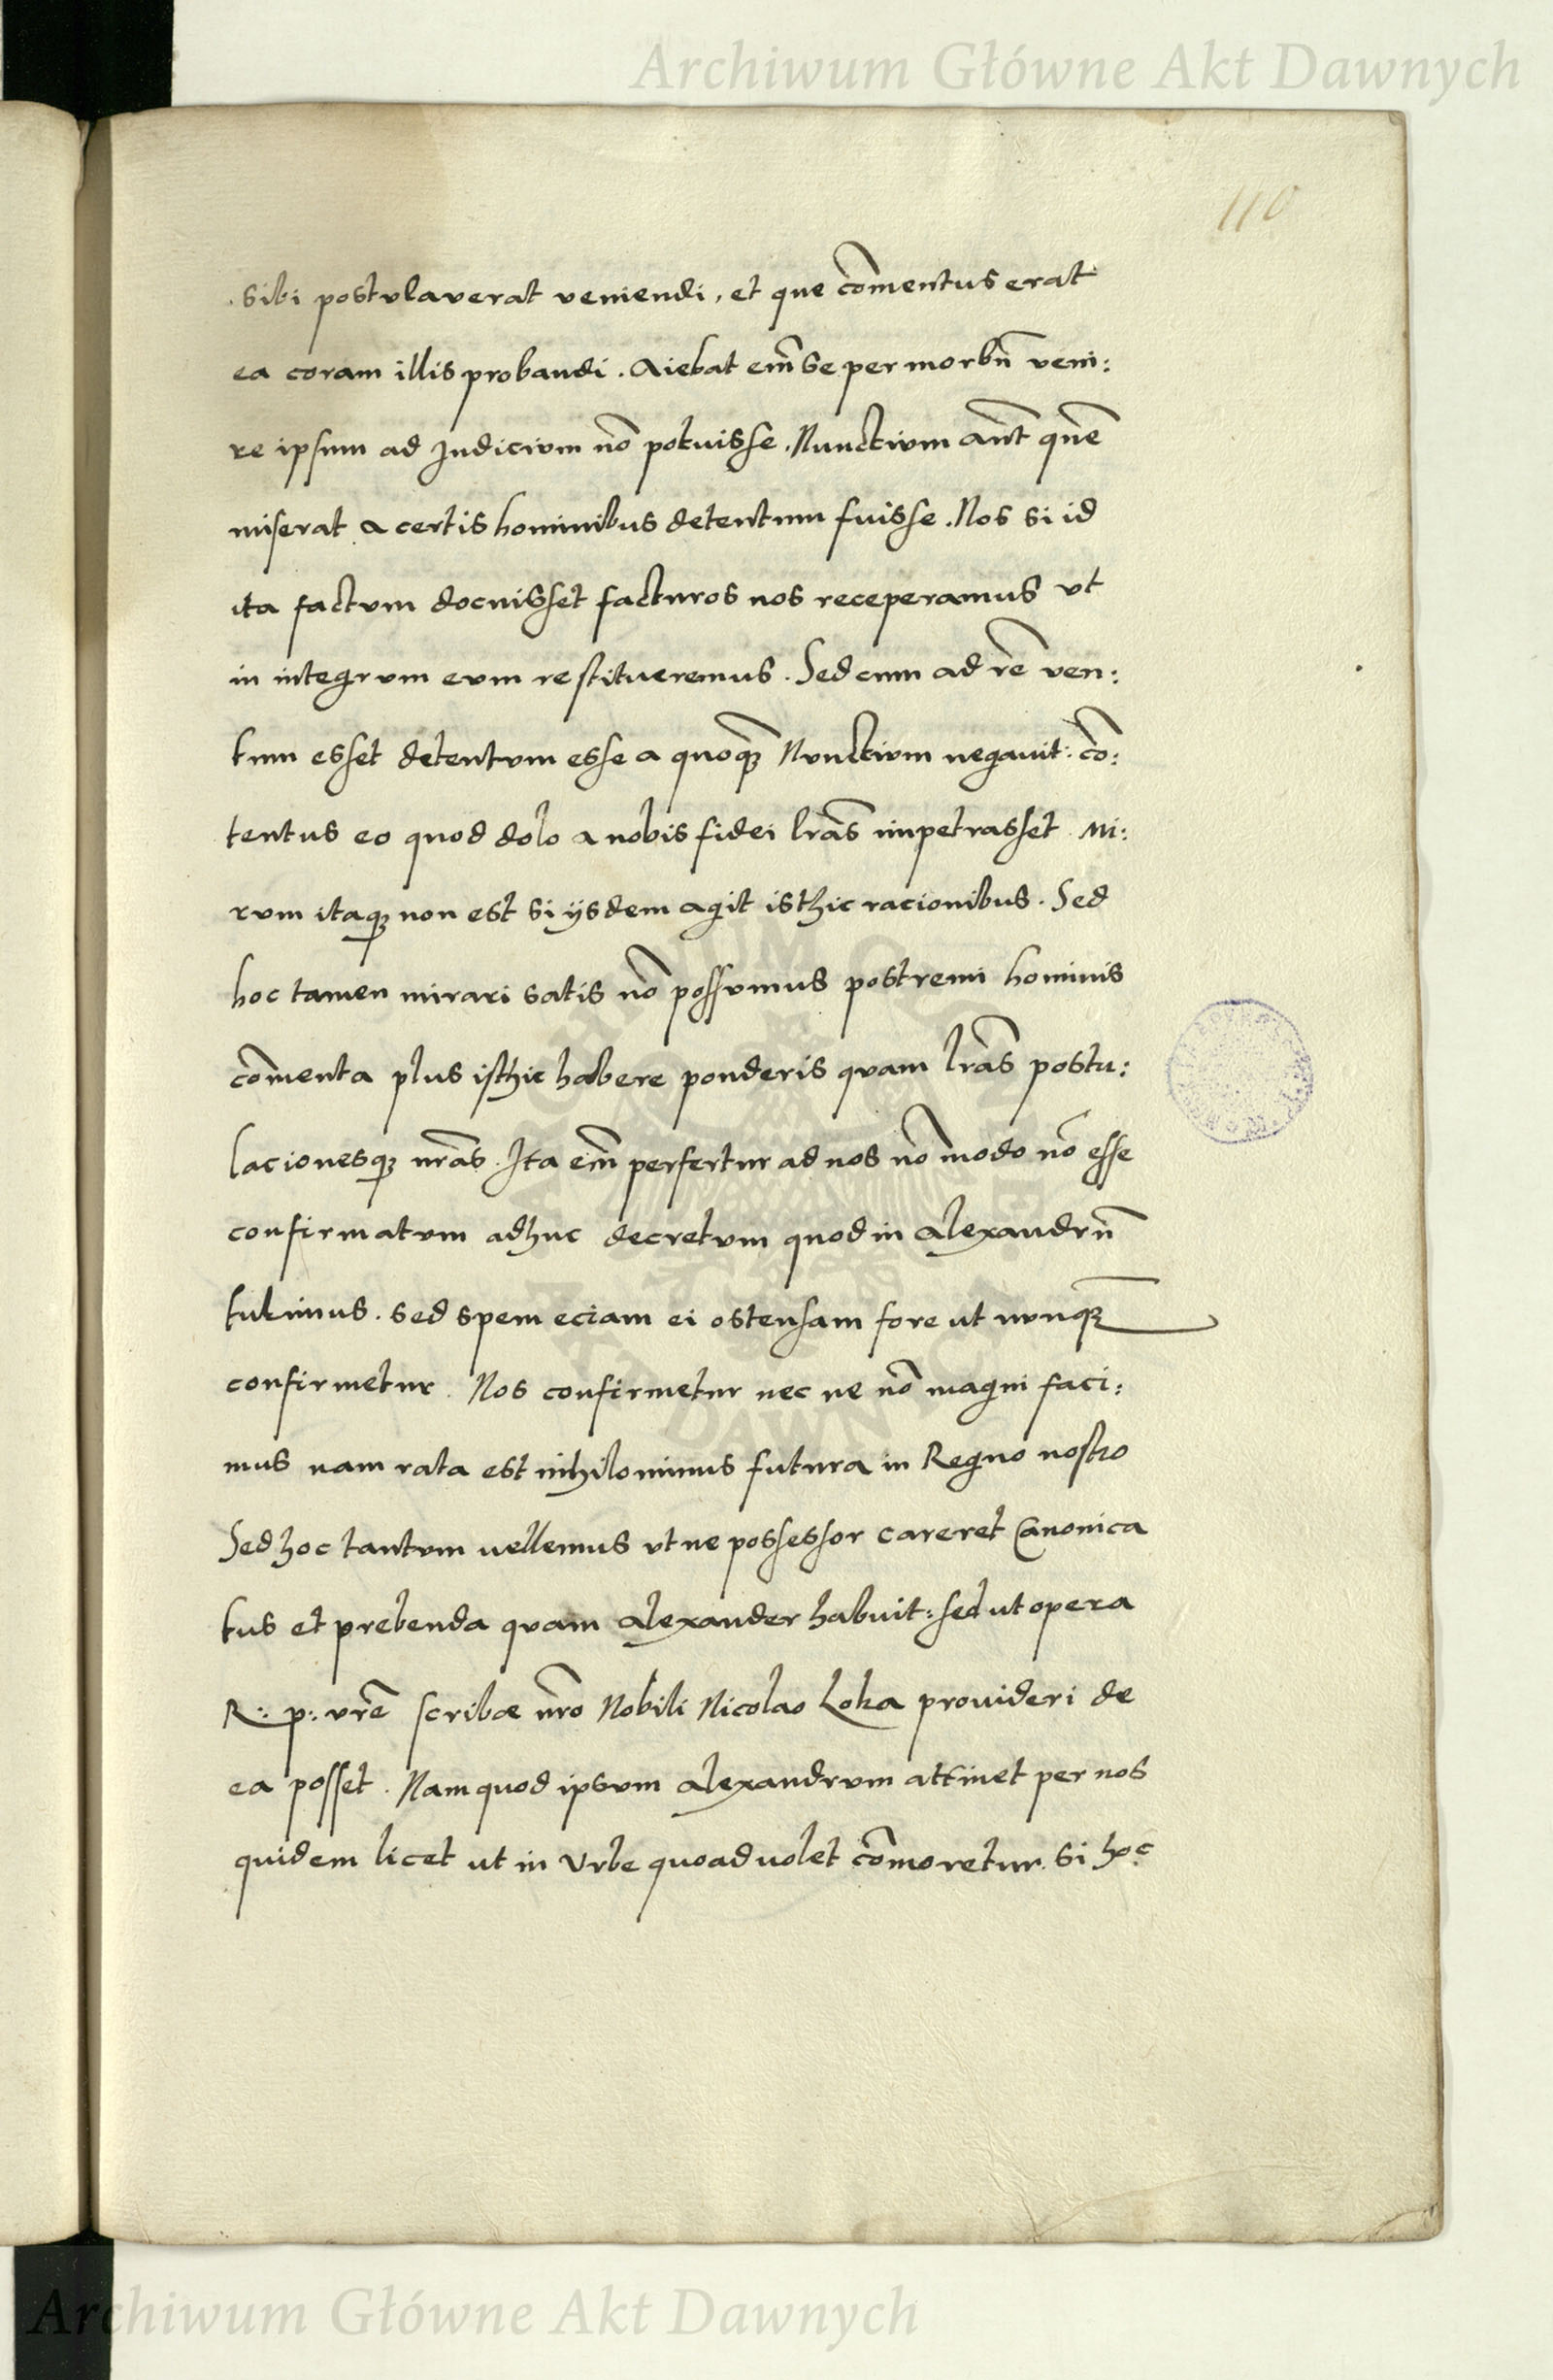 Archiwum Główne Akt Dawnych
110
sibi postulaverat veniendi, et que com̄entus erat
ea coram illis probandi. Aiebat em̄ se per morbū veni:
re ipsum ad Judicium nō potuisse. Nunctium aut̄ quē
miserat a certis hominibus detentum fuisse. Nos si id
ita factum docuisset facturos nos receperamus ut
in integrum eum restitueremus. Sed cum ad rē ven:
tum esset detentum esse a quoq̄ Nunctium negavit: cō:
tentus eo quod dolo a nobis fidei lrās impetrasset. Mi:
rum itaq; non est si ijsdem agit isthic racionibus. Sed
hoc tamen mirari satis nō possumus postremi hominis
com̄enta plus isthic habere ponderis quam lrās postu:
lacionesq; nrās. Ita em̄ perfertur ad nos nō modo nō esse
confirmatum adhuc decretum quod in Alexandrū
tulimus. sed spem eciam ei ostensam fore ut nunq̄
confirmetur. Nos confirmetur nec ne nō magni faci:
mus nam rata est nihilominus futura in Regno nostro
Sed hoc tantum vellemus ut ne possessor careret Canonica
tus et prebenda quam Alexander habuit: sed ut opera
R: p: vrē scribae nr̄o Nobili Nicolao Loka provideri de
ea posset. Nam quod ipsum Alexandrum attinet per nos
quidem licet ut in Urbe quoad volet com̄oretur. Si hoc
Archiwum Główne Akt Dawnych